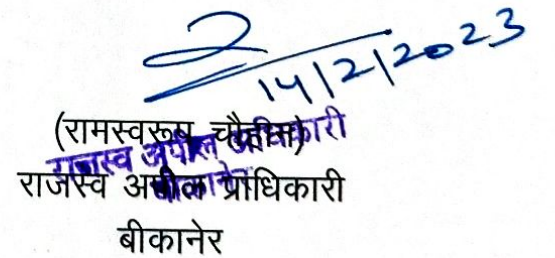 14/2/2023
(रामस्वरूप चौहान)
राजस्व अपील अधिकारी
राजस्व अपील प्राधिकारी
बीकानेर
बीकानेर